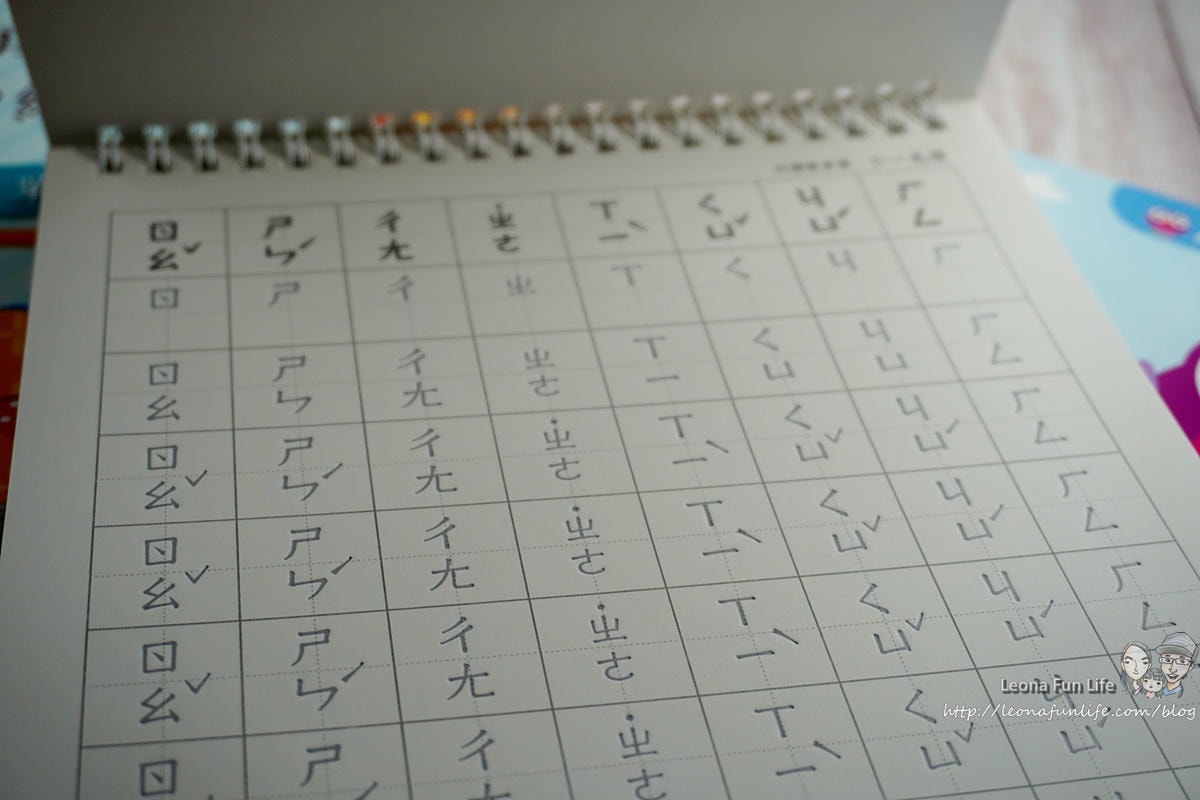 ㄖㄠˇ ㄕㄣˊ ㄔㄤ ˙ㄓㄜ ㄒㄧˋ ㄑㄩˇ ㄐㄩˊ ㄏㄥ
ㄖ ㄕ ㄔ ㄓ ㄒ ㄑ ㄐ ㄏ
ㄖㄠ ㄕㄣ ㄔㄤ ㄓㄜ ㄒㄧ ㄑㄩ ㄐㄩ ㄏㄥ
ㄖㄠˇ ㄕㄣˊ ㄔㄤ ˙ㄓㄜ ㄒㄧˋ ㄑㄩˇ ㄐㄩˊ ㄏㄥ
ㄖㄠˇ ㄕㄣˊ ㄔㄤ ˙ㄓㄜ ㄒㄧˋ ㄑㄩˇ ㄐㄩˊ ㄏㄥ
ㄖㄠˇ ㄕㄣˊ ㄔㄤ ˙ㄓㄜ ㄒㄧˋ ㄑㄩˇ ㄐㄩˊ ㄏㄥ
ㄖ ㄕ ㄔ ˙ㄓㄜ ㄒㄧˋ ㄑㄩˇ ㄐㄩˊ
Leona Fun Life
http://leonafunlife.com/blog